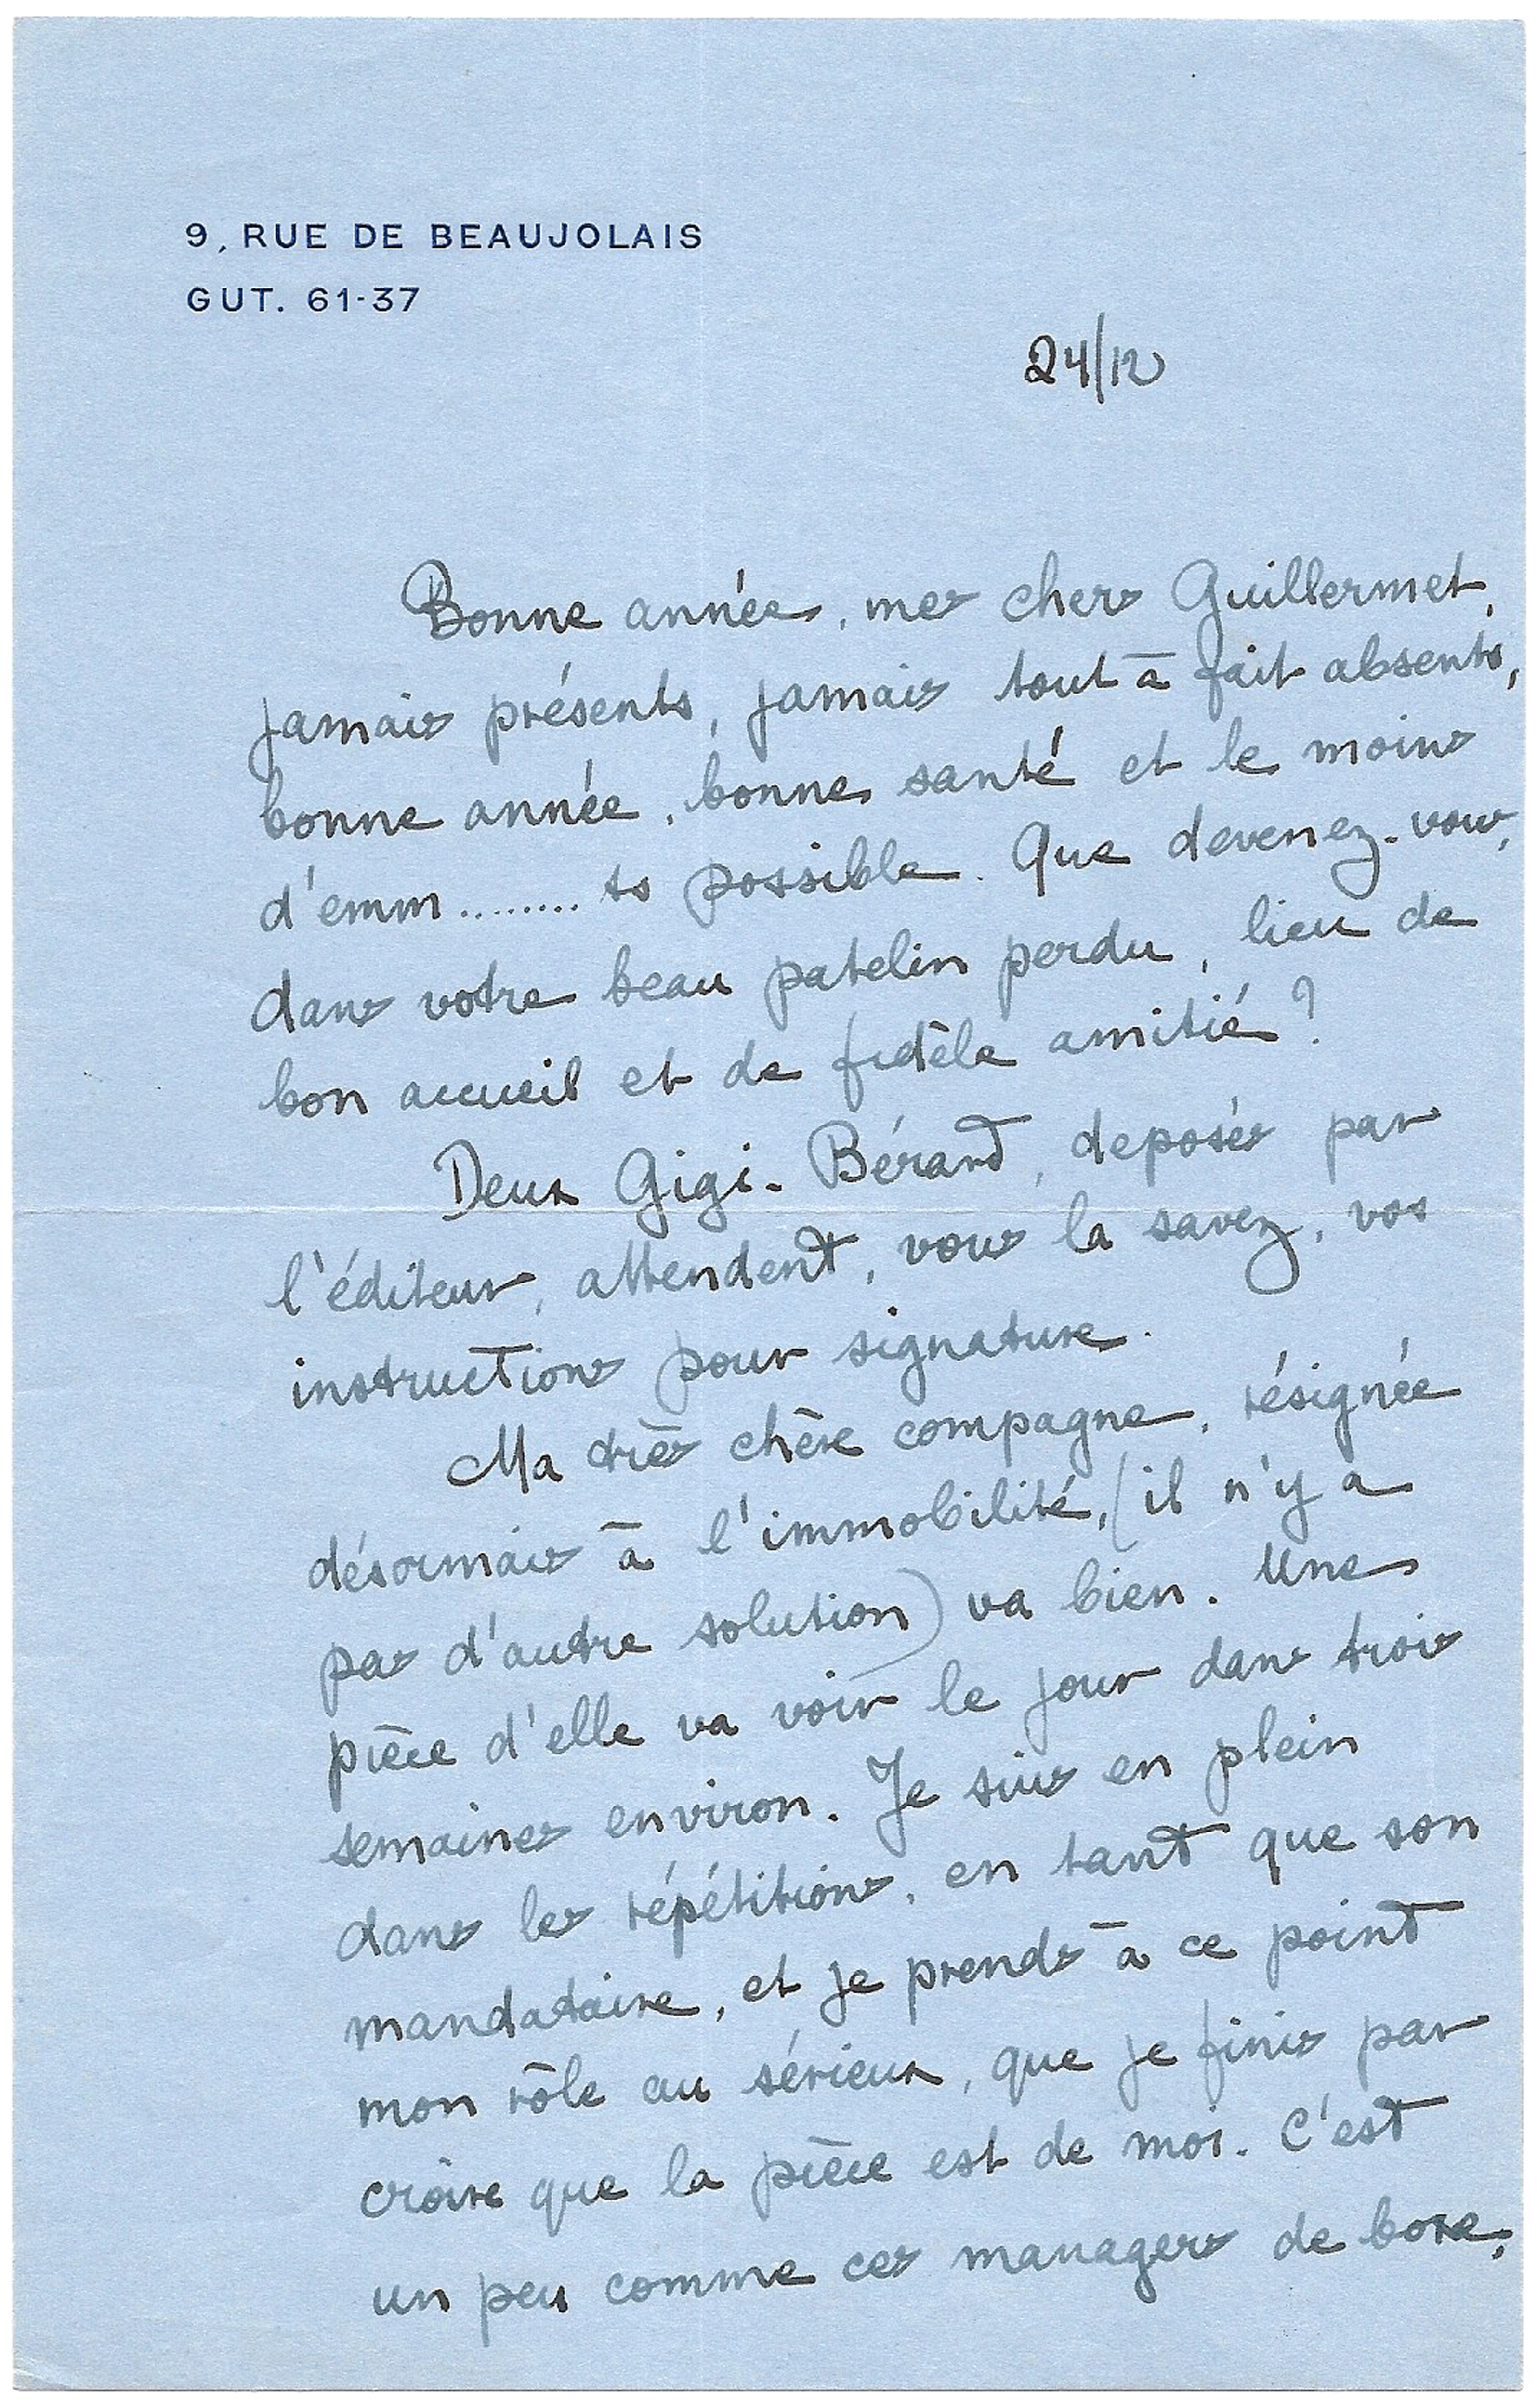 9, RUE DE BEAUJOLAIS
GUT. 61-37
24/12
Bonne année, mes chers Guillermet,
jamais présents, jamais tout à fait absents,
bonne année, bonne santé et le moins
d'emm........ts possible. Que devenez-vous,
dans votre beau patelin perdu, lieu de
bon accueil et de fidèle amitié ?
Deux Gigi-Bérard, deposés par
l'éditeur, attendent, vous le savez, vos
instructions pour signature.
Ma très chère compagne, résignée
désormais à l'immobilité, (il n'y a
pas d'autre solution) va bien. Une
pièce d'elle va voir le jour dans trois
semaines environ. Je suis en plein
dans les répétitions, en tant que son
mandataire, et je prends à ce point
mon rôle au sérieux, que je finis par
croire que la pièce est de moi. C'est
un peu comme ces managers de boxe,